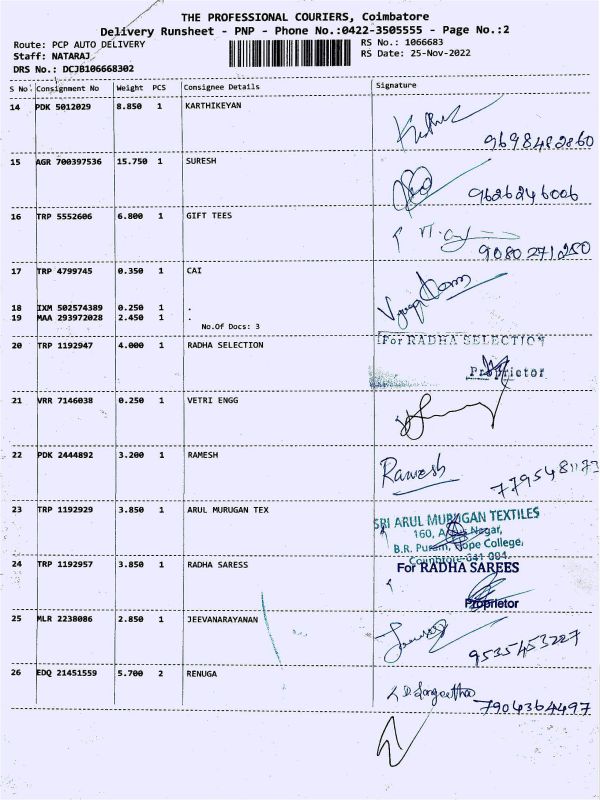 THE PROFESSIONAL COURIERS, Coimbatore
Delivery Runsheet - PNP - Phone No.:0422-3505555 - Page No.:2
Route: PCP AUTO DELIVERY
RS No.: 1066683
Staff: NATARAJ
RS Date: 25-Nov-2022
DRS No.: DCJB106668302
S No Consignment No Weight PCS Consignee Details Signature
14 PDK 5012029 8.850 1 KARTHIKEYAN
9698482860
15 AGR 700397536 15.750 1 SURESH
9626246006
16 TRP 5552606 6.800 1 GIFT TEES
9080271250
17 TRP 4799745 0.350 1 CAI
18 IXM 502574389 0.250 1 .
19 MAA 293972028 2.450 1 .
No.Of Docs: 3
For RADHA SELECTION
20 TRP 1192947 4.000 1 RADHA SELECTION
Proprietor
21 VRR 7146038 0.250 1 VETRI ENGG
22 PDK 2444892 3.200 1 RAMESH
Ramesh
7795481173
23 TRP 1192929 3.850 1 ARUL MURUGAN TEX
SRI ARUL MURUGAN TEXTILES
160, Nagar,
B.R. Puram, Hope College,
Coimbtore-641 004.
24 TRP 1192957 3.850 1 RADHA SARESS
For RADHA SAREES
Proprietor
25 MLR 2238086 2.850 1 JEEVANARAYANAN
9535453227
26 EDQ 21451559 5.700 2 RENUGA
Sangeetha
7904364497